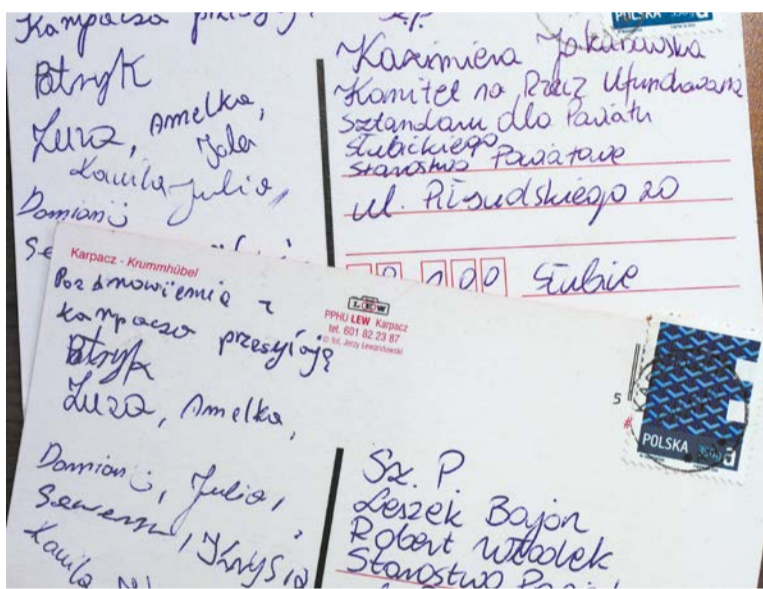 Karpacza przesyłają
Patryk
Zuza, Amelka,
Jola
Kamila, Julia,
Damian
Se
Sz. P.
Kazimiera Jakubowska
Komitet na Rzecz Ufundowania
Sztandaru dla Powiatu
Słubickiego
Starostwo Powiatowe
ul. Piłsudskiego 20
100 Słubice
POLSKA
Karpacz - Krummhübel
Pozdrowienia z
Karpacza przesyłają
Patryk
Zuza, Amelka,
Damian, Julia,
Seweryn, Krysia
Kamila
LEW
PPHU LEW Karpacz
tel. 601 82 23 87
© fot. Jerzy Lewandowski
5
POLSKA
Sz. P
Leszek Bajon
Robert Włodek
Starostwo